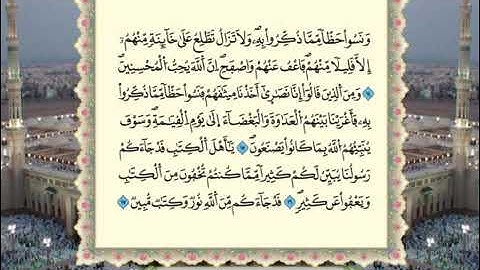 وَنَسُوا۟ حَظًّا مِّمَّا ذُكِّرُوا۟ بِهِۦۚ وَلَا تَزَالُ تَطَّلِعُ عَلَىٰ خَآئِنَةٍ مِّنْهُمْۥٓ
إِلَّا قَلِيلًا مِّنْهُمْ فَاعْفُ عَنْهُمْ وَاصْفَحِۚ إِنَّ اللَّهَ يُحِبُّ الْمُحْسِنِينَ
وَمِنَ الَّذِينَ قَالُوٓا۟ إِنَّا نَصَٰرَىٰٓ أَخَذْنَا مِيثَٰقَهُمْ فَنَسُوا۟ حَظًّا مِّمَّا ذُكِّرُوا۟
بِهِۦ فَأَغْرَيْنَا بَيْنَهُمُ الْعَدَاوَةَ وَالْبَغْضَآءَ إِلَىٰ يَوْمِ الْقِيَٰمَةِۚ وَسَوْفَ
يُنَبِّئُهُمُ اللَّهُ بِمَا كَانُوا۟ يَصْنَعُونَ يَٰٓأَهْلَ الْكِتَٰبِ قَدْ جَآءَكُمْ
رَسُولُنَا يُبَيِّنُ لَكُمْ كَثِيرًا مِّمَّا كُنتُمْ تُخْفُونَ مِنَ الْكِتَٰبِ
وَيَعْفُوا۟ عَن كَثِيرٍۚ قَدْ جَآءَكُم مِّنَ اللَّهِ نُورٌ وَكِتَٰبٌ مُّبِينٌ